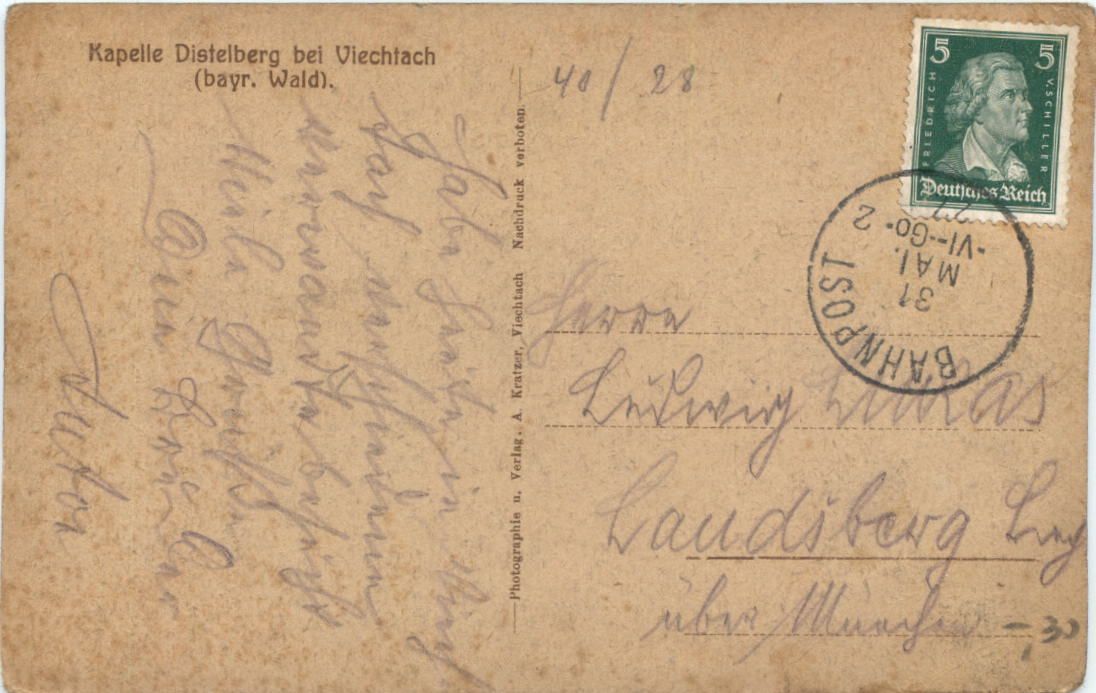 Kapelle Distelberg bei Viechtach
(bayr. Wald).
40/28
5 5
FRIEDRICH V. SCHILLER
Deutsches Reich
BAHNPOST
31
MAI.
-VI--GO-2
27
Photographie u. Verlag, A. Kratzer, Viechtach Nachdruck verboten.
Habe heute in
verwandte besucht
Viele Grüße
Herrn
Ludwig Lukas
Landsberg Lech
über München
-,30